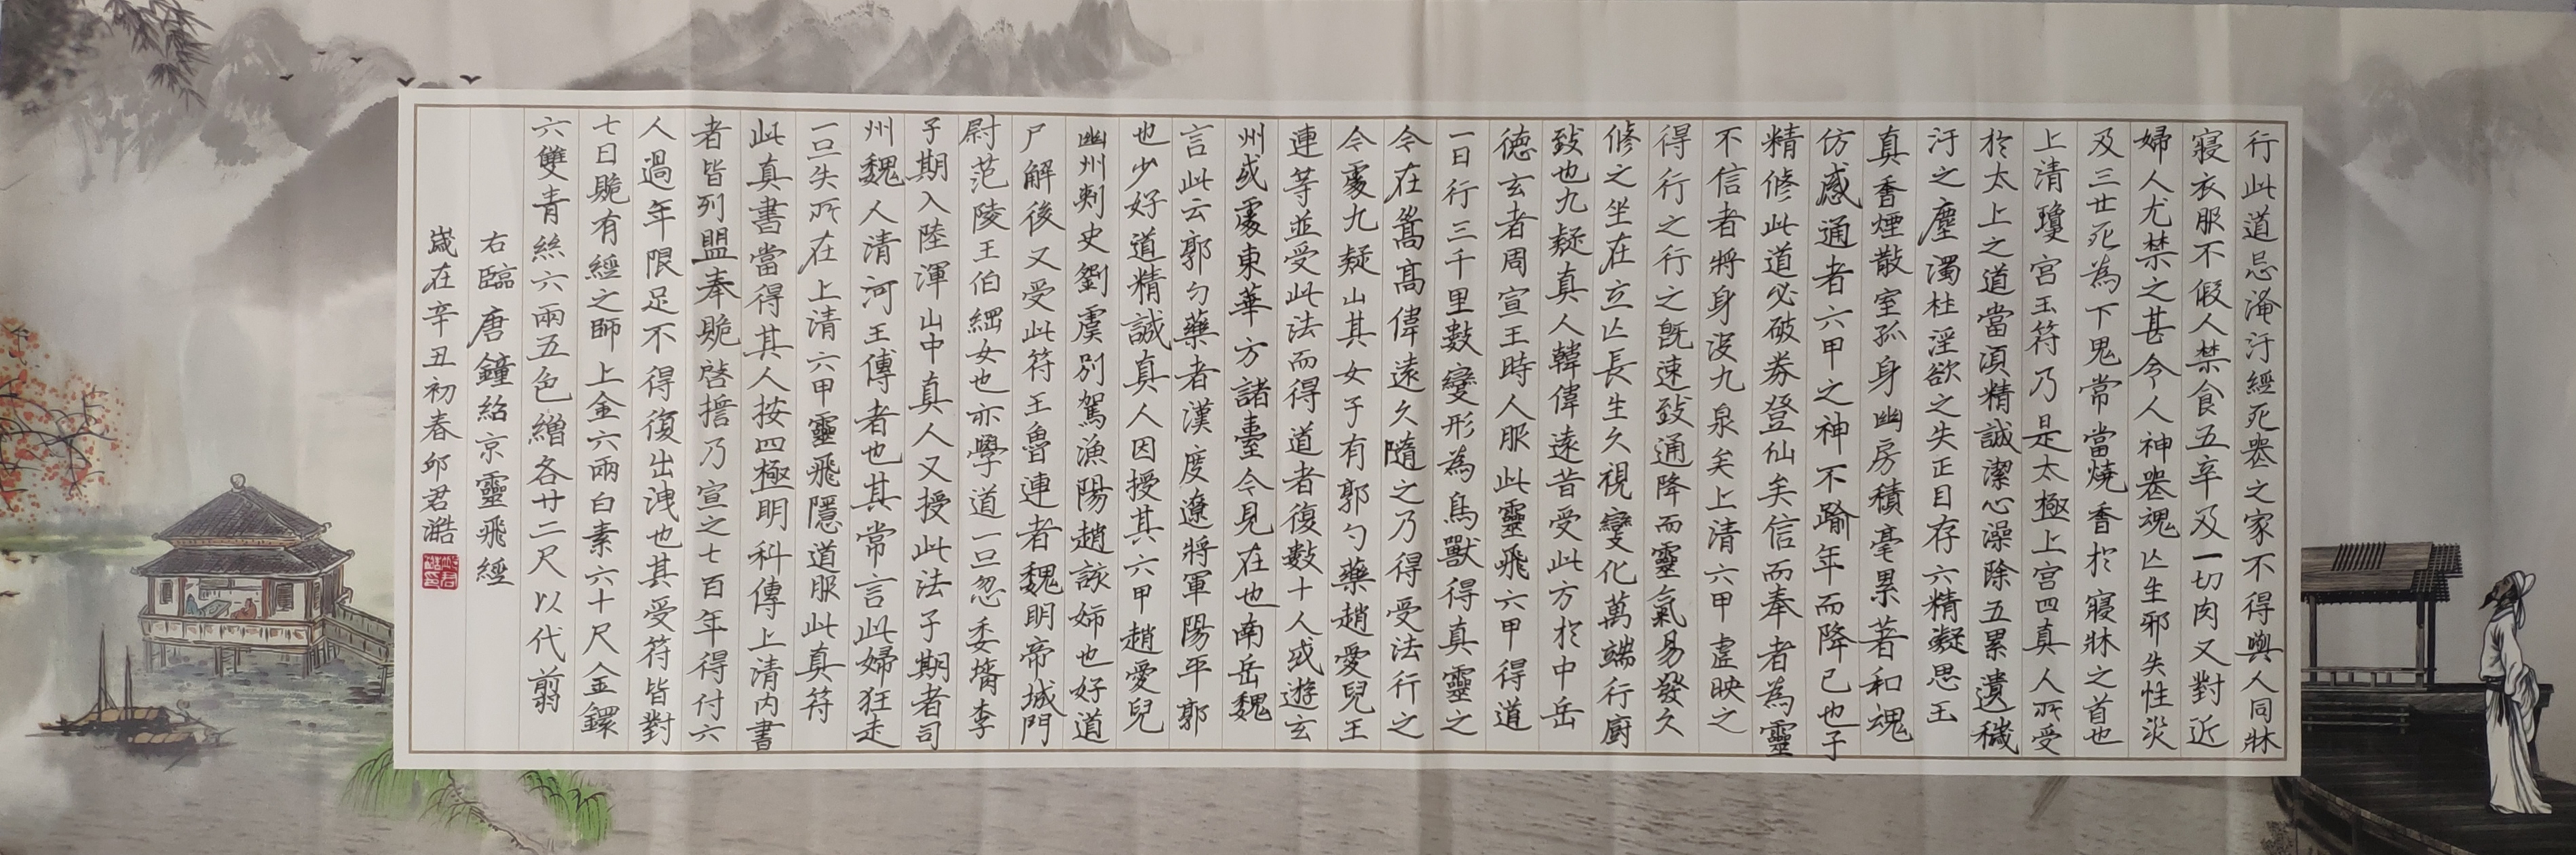 行此道忌淹汙經死喪之家不得與人同牀
寢衣服不假人禁食五辛及一切肉又對近
婦人尤禁之甚令人神喪魂亡生邪失性災
及三世死為下鬼常當燒香於寢牀之首也
上清瓊宮玉符乃是太極上宮四真人所受
於太上之道當須精誠潔心澡除五累遺穢
汙之塵濁杜淫欲之失正目存六精凝思玉
真香煙散室孤身幽房積毫累著和魂
仿感通者六甲之神不踰年而降已也子
精修此道必破券登仙矣信而奉者為靈
不信者將身沒九泉矣上清六甲虛映之
得行之行之既速致通降而靈氣易發久
修之坐在立亡長生久視變化萬端行廚
致也九疑真人韓偉遠昔受此方於中岳
德玄者周宣王時人服此靈飛六甲得道
一日行三千里數變形為鳥獸得真靈之
今在嵩高偉遠久隨之乃得受法行之
今處九疑山其女子有郭勺藥趙愛兒王
連等並受此法而得道者復數十人或遊玄
州或處東華方諸臺今見在也南岳魏
言此云郭勺藥者漢度遼將軍陽平郭
也少好道精誠真人因授其六甲趙愛兒
幽州刺史劉虞別駕漁陽趙該姉也好道
尸解後又受此符王魯連者魏明帝城門
尉范陵王伯綱女也亦學道一旦忽委壻李
子期入陸渾山中真人又授此法子期者司
州魏人清河王傳者也其常言此婦狂走
一旦失所在上清六甲靈飛隱道服此真符
此真書當得其人按四極明科傳上清內書
者皆列盟奉贶啓擔乃宣之七百年得付六
人過年限足不得復出洩也其受符皆對
七日贶有經之師上金六兩白素六十尺金鐶
六雙青絲六兩五色繒各廿二尺以代翦
右臨唐鐘紹京靈飛經
歲在辛丑初春邱君澔